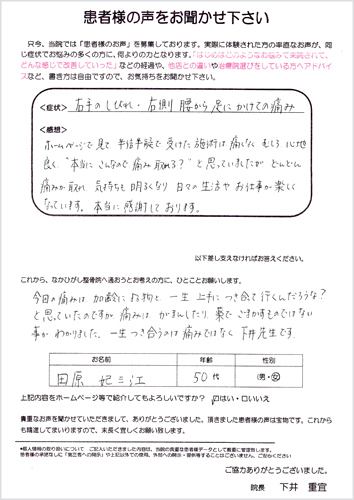 患者様の声をお聞かせ下さい
只今、当院では「患者様のお声」を募集しております。実際に体験された方の率直なお声が、同
じ症状でお悩みの多くの方に、何よりの力となります。「はじめはどのようなお悩みで来院されて、
どんな感じで改善していった」などの経過や、他店との違いや治療院選びをしている方へアドバイ
スなど、書き方は自由ですので、お気持ちをお聞かせ下さい。
<症状> 右手のしびれ・右側 腰から足にかけての痛み
<感想>
ホームページで見て 半信半疑で 受けた 施術は 痛くなく むしろ 心地
良く、"本当に こんなので 痛み 取れる?" と 思っていましたが どんどん
痛みが 取れ 気持ちも 明るくなり 日々の 生活や お仕事が 楽しく
なっています。本当に 感謝して おります。
以下差し支えなければお答えください。
これから、なかひがし整骨院へ通おうとお考えの方に、ひとことお願いします。
今回の痛みは 加齢に 伴う物と 一生 上手に つき合って 行くんだろうな?
と 思っていたのですが 痛みは がまんしたり 薬で ごまかすものではない
事が わかりました。一生 つき合うのは 痛みではなく 下井先生です
お名前 年齢 性別
田原 三江 50代 (男・女)
上記内容をホームページ等で紹介してもよろしいですか? はい・口いいえ
貴重なお声を聞かせていただきまして、ありがとうございました。頂きました患者様の声は宝物です。これから
も精進してまいりますので、末長く宜しくお願い致します。
*個人情報の取り扱いについて ご記入いただきました内容は、当院の貴重な患者様データとして厳重に管理致します。
患者様の承諾なしに「第三者への開示」や上記以外での使用、外部への開示・提供等することはございません。ご安心ください
ご協力ありがとうございました。
院長 下井 重宜